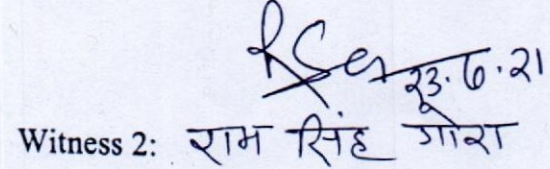 २३.७.२१
Witness 2: राम सिंह गोरा